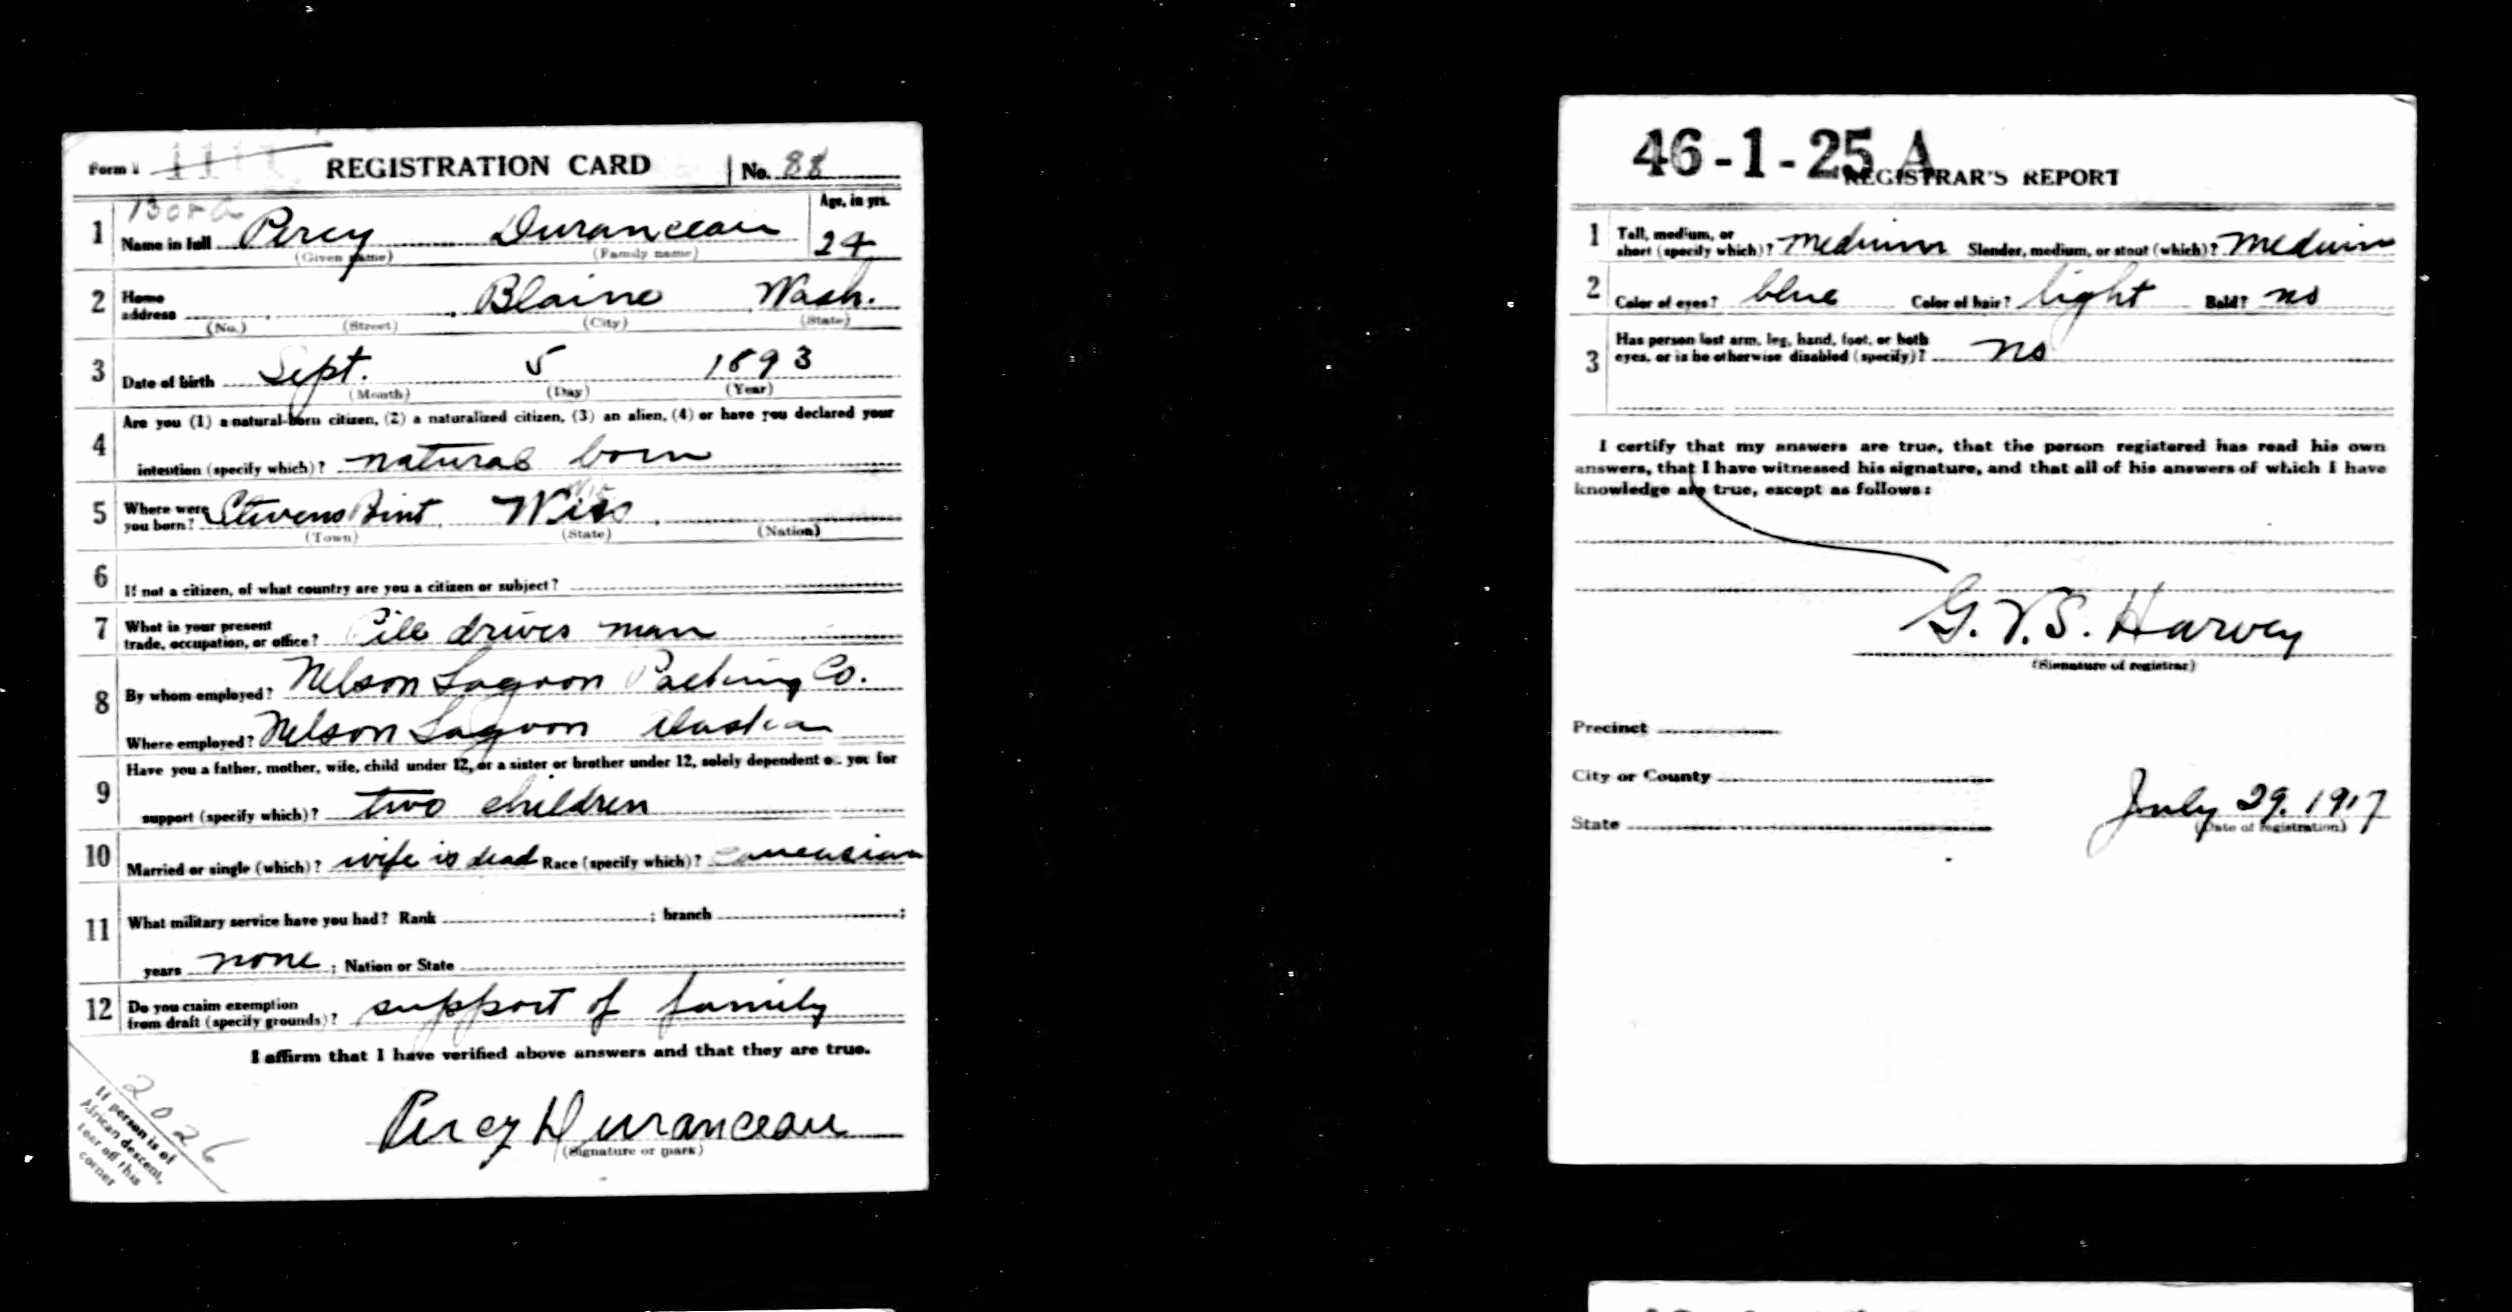 Form 1 1111 REGISTRATION CARD No. 88
1 Name in full Percy Duranceau Age, in yrs. 24
(Given name) (Family name)
2 Home address Blaine Wash.
(No.) (Street) (City) (State)
3 Date of birth Sept. 5 1893
(Month) (Day) (Year)
4 Are you (1) a natural-born citizen, (2) a naturalized citizen, (3) an alien, (4) or have you declared your
intention (specify which)? natural born
5 Where were you born? Stevens Point Wiss
(Town) (State) (Nation)
6 If not a citizen, of what country are you a citizen or subject?
7 What is your present
trade, occupation, or office? Pile drives man
8 By whom employed? Nelson Lagoon Packing Co.
Where employed? Nelson Lagoon Alaska
9 Have you a father, mother, wife, child under 12, or a sister or brother under 12, solely dependent on you for
support (specify which)? two children
10 Married or single (which)? wife is dead Race (specify which)? Caucasian
11 What military service have you had? Rank ; branch ;
years none ; Nation or State
12 Do you claim exemption
from draft (specify grounds)? support of family
I affirm that I have verified above answers and that they are true.
Percy Duranceau
(Signature or mark)
2026
If person is of
African descent,
tear off this
corner
46-1-25 A
REGISTRAR'S REPORT
1 Tall, medium, or
short (specify which)? medium Slender, medium, or stout (which)? medium
2 Color of eyes? blue Color of hair? light Bald? no
3 Has person lost arm, leg, hand, foot, or both
eyes, or is he otherwise disabled (specify)? no
I certify that my answers are true, that the person registered has read his own
answers, that I have witnessed his signature, and that all of his answers of which I have
knowledge are true, except as follows:
G. V. S. Harvey
(Signature of registrar)
Precinct
City or County
State
July 29, 1917
(Date of registration)